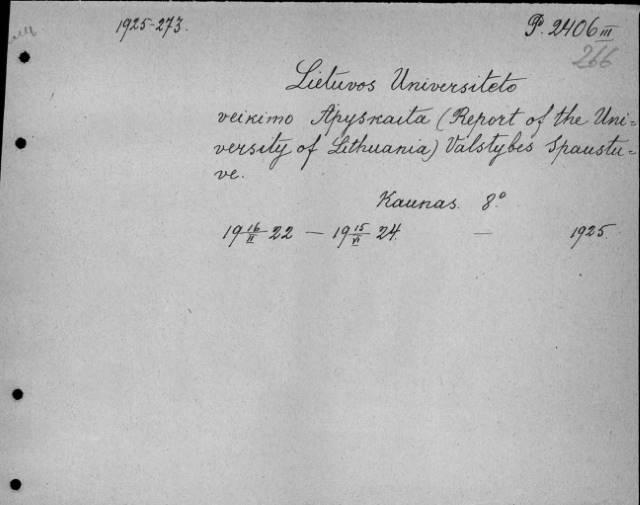 1925-273.
P. 2406 III
266
Lietuvos Universiteto
veikimo Apyskaita (Report of the Uni-
versity of Lithuania) Valstybės Spaustu-
ve.
Kaunas. 8°
19 16/II 22 — 19 15/VI 24. — 1925.